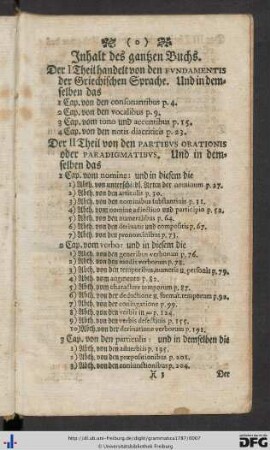 (o)
Inhalt des gantzen Buchs.
Der I Theil handelt von den FVNDAMENTIS
der Griechischen Sprache. Und in dem-
selben das
1 Cap. von den consonantibus p. 4.
2 Cap. von den vocalibus p. 9.
3 Cap. vom tono und accentibus p. 15.
4 Cap. von den notis diacriticis p. 23.
Der II Theil von den PARTIBVS ORATIONIS
oder PARADIGMATIBVS. Und in dem-
selben das
1 Cap. vom nomine: und in diesem die
1) Abth. von unterschiedl. Arten der nominum p. 27.
2) Abth. von den articulis p. 30.
3) Abth. von den nominibus substantivis p. 31.
4) Abth. vom nomine adjectivo und participio p. 52.
5) Abth. von den numeralibus p. 64.
6) Abth. von den derivatis und compositis p. 67.
7) Abth. von den pronominibus p. 73.
2 Cap. vom verbo: und in diesem die
1) Abth. von den generibus verborum p. 76.
2) Abth. von den modis verborum p. 78.
3) Abth. von den temporibus, numeris u. personis p. 79.
4) Abth. vom augmento p. 81.
5) Abth. vom charactere temporum p. 87.
6) Abth. von der deductione u. format. temporum p. 90.
7) Abth. von der conjugatione p. 99.
8) Abth. von den verbis in μι p. 124.
9) Abth. von den verbis defectivis p. 155.
10) Abth. von der derivatione verborum p. 191.
3 Cap. von den particulis: und in demselben die
1) Abth. von den adverbiis p. 195.
2) Abth. von den praepositionibus p. 201.
3) Abth. von den conjunctionibus p. 204.
Der
http://dl.ub.uni-freiburg.de/diglit/grammatica1787/0007
© Universitätsbibliothek Freiburg
gefördert durch
DFG